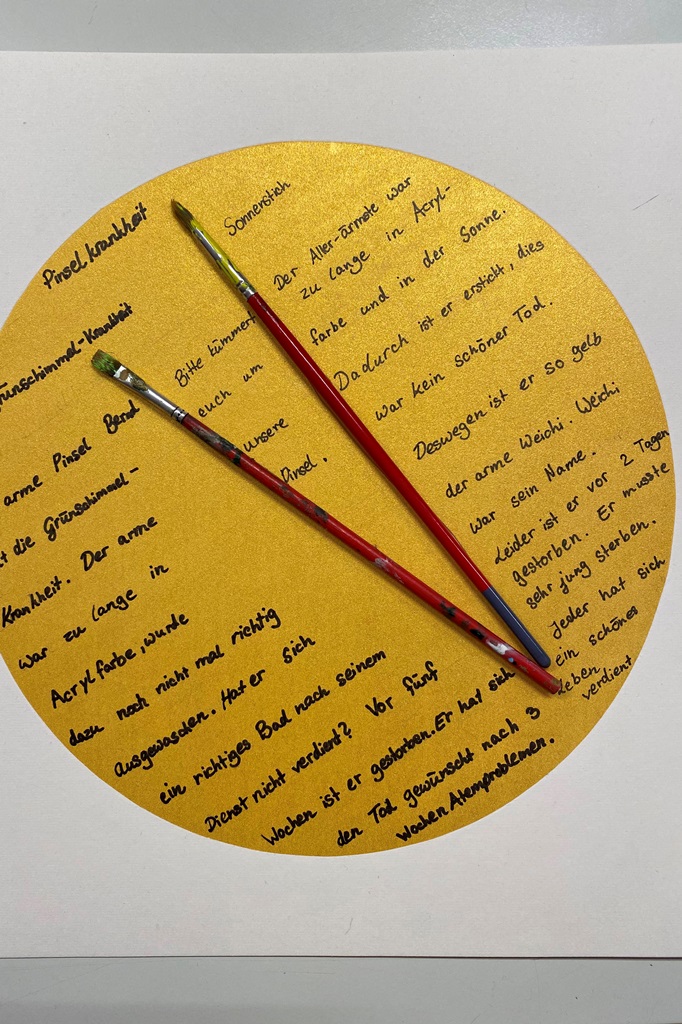 Pinselkrankheit
rünschimmel-Krankheit
arme Pinsel Bernd
t die Grünschimmel-
Krankheit. Der arme
war zu lange in
Acrylfarbe, wurde
dazu noch nicht mal richtig
ausgewaschen. Hat er sich
ein richtiges Bad nach seinem
Dienst nicht verdient? Vor fünf
Wochen ist er gestorben. Er hat sich
den Tod gewünscht nach 3
Wochen Atemproblemen.
Bitte kümmert
euch um
unsere
Pinsel.
Sonnenstich
Der Aller-ärmste war
zu lange in Acryl-
farbe und in der Sonne.
Dadurch ist er erstickt, dies
war kein schöner Tod.
Deswegen ist er so gelb
der arme Weichi. Weichi
war sein Name.
Leider ist er vor 2 Tagen
gestorben. Er musste
sehr jung sterben.
Jeder hat sich
ein schönes
Leben
verdient